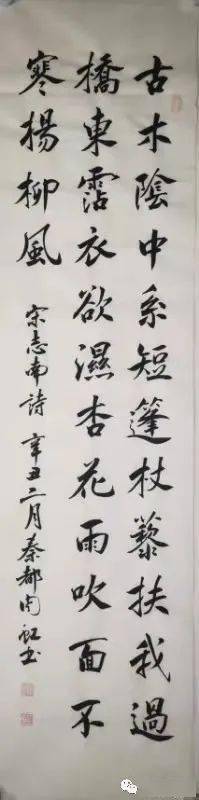 古木陰中系短篷杖藜扶我過
橋東霑衣欲濕杏花雨吹面不
寒楊柳風
宋志南詩 辛丑二月秦都周虹书